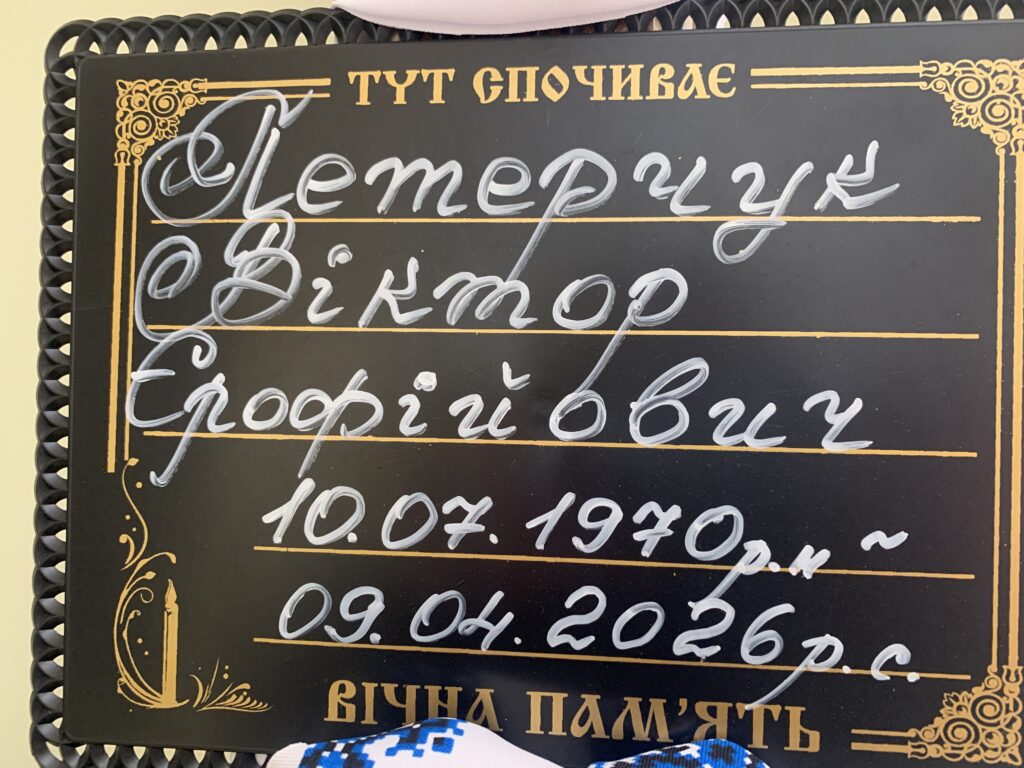 ТУТ СПОЧИВАЄ
Петерчук
Віктор
Єрофійович
10.07.1970р.н ~
09.04.2026р.с.
ВІЧНА ПАМ'ЯТЬ